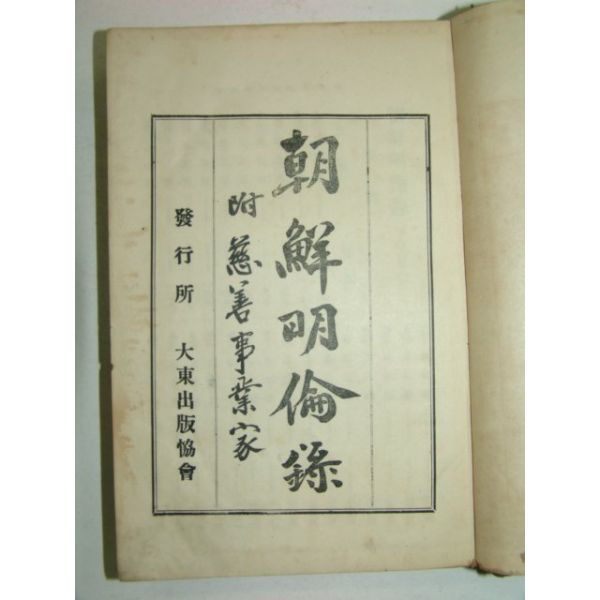 朝鮮明倫錄
附 慈善事業家
發行所 大東出版協會